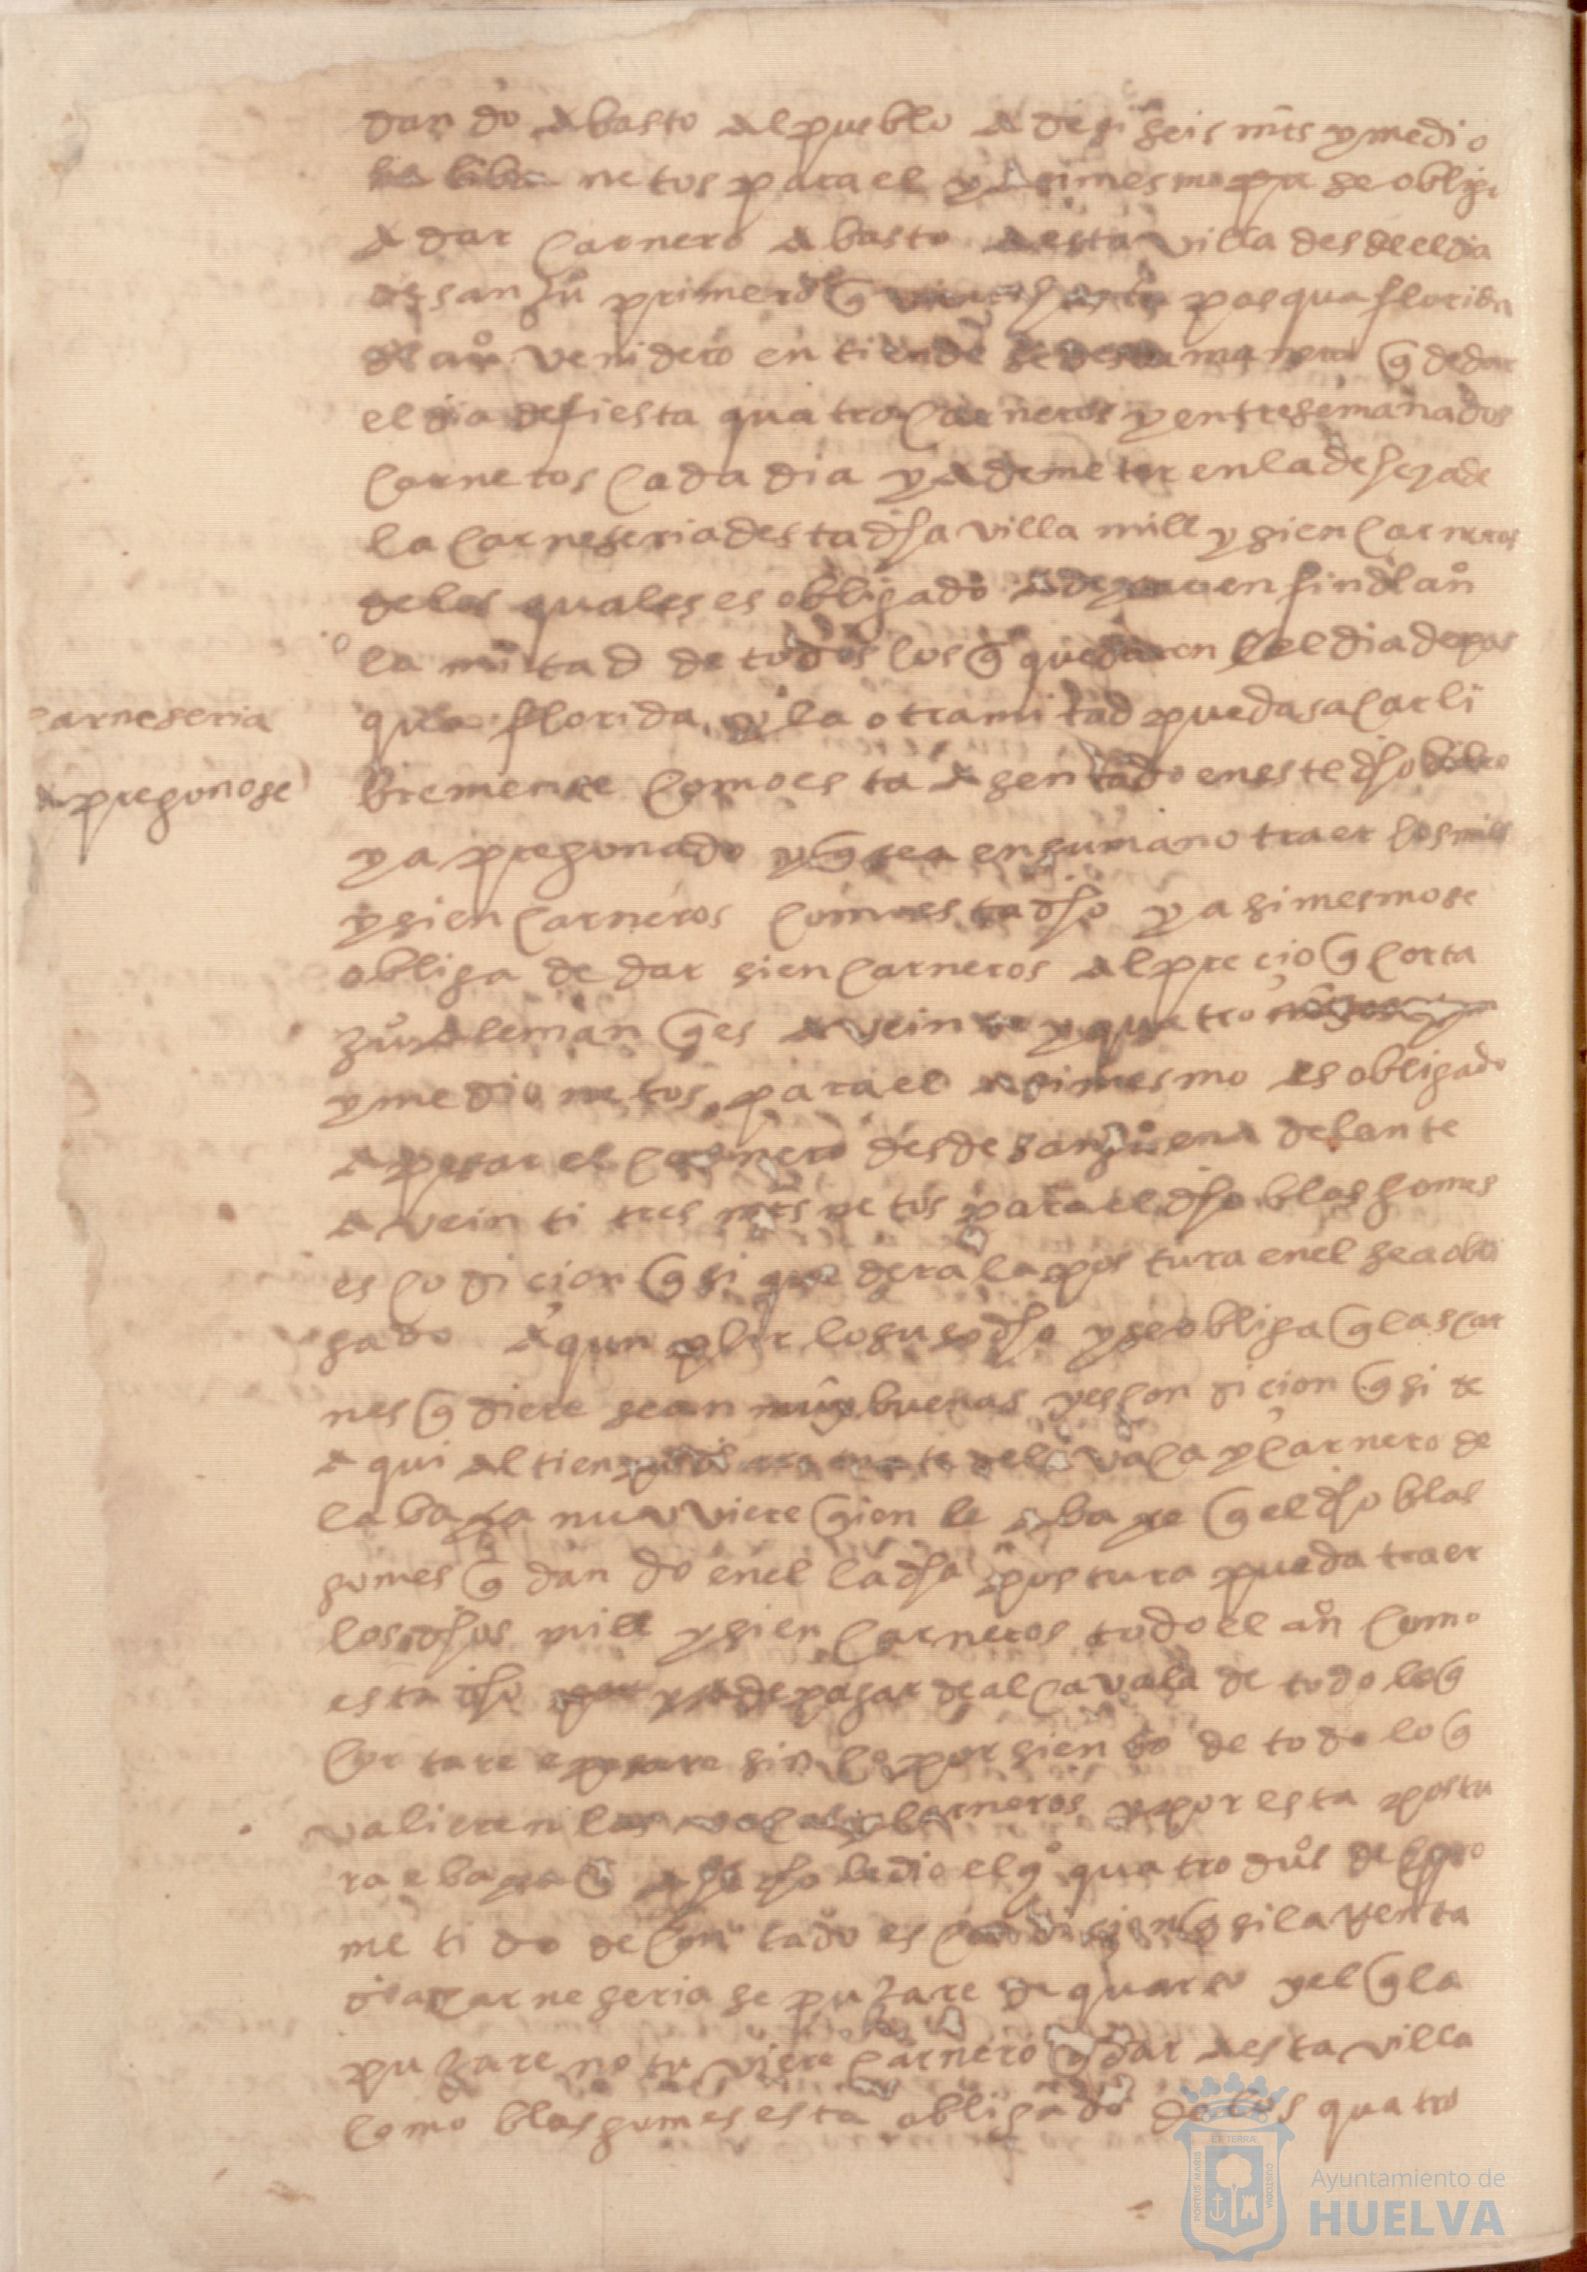 dando abasto al pueblo a desiseis mrs y medio
netos para el y asimesmo se obliga
a dar carnero abasto a esta villa desde el dia
de san juº primero q pasqua florida
del añº venidero entiende se desta manera q de dar
el dia de fiesta quatro carneros y entre semana dos
carneros cada dia y a de meter en la dehesa de
la carneseria desta dha villa mill y sien carneros
de los quales es obligado en fin dl añº
la mitad de todos los q quedaren el dia de pas
qua florida y la otra mitad pueda sacar li
carneseria
bremente como esta asentado en este dho
apregonose
y apregonado y q sea en su mano traer los mill
y sien carneros como esta dho y asimesmo se
obliga de dar sien carneros al precio q corta
juº aleman q es a veinte y quatro
y medio netos para el asimesmo es obligado
a pesar el carnero desde san juº en adelante
a veinti tres mrs netos para el dho blas gomes
es codicion q si quedera la postura en el sea obli
gado a qunplir lo suso dho y se obliga q las car
nes q diere sean muy buenas y es condicion q si de
aqui al tienpo del remate de la vaca y carnero de
la baxa no uviere qien le abaxe q el dho blas
gomes q dando en el la dha postura pueda traer
los dhos mill y sien carneros todo el añº como
esta dho y a de pagar de alcavala de todo lo q
cortare e pesare sinco por siento de todo lo q
valieren las vacas y carneros y por esta postu
ra e baxa q a dho le dio el qº quatro dus de pro
metido de contado es condision q si la renta
de la carneseria se pujare de quarto y el q la
pujare no tuviere carnero q dar a esta villa
como blas gomes esta obligado de los quatro
Ayuntamiento de
HUELVA